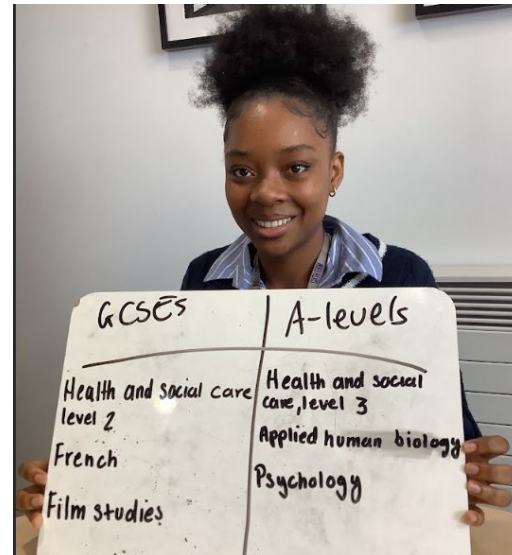 GCSEs
A-levels
Health and social care
level 2
French
Film studies
Health and social
care, level 3
Applied human biology
Psychology